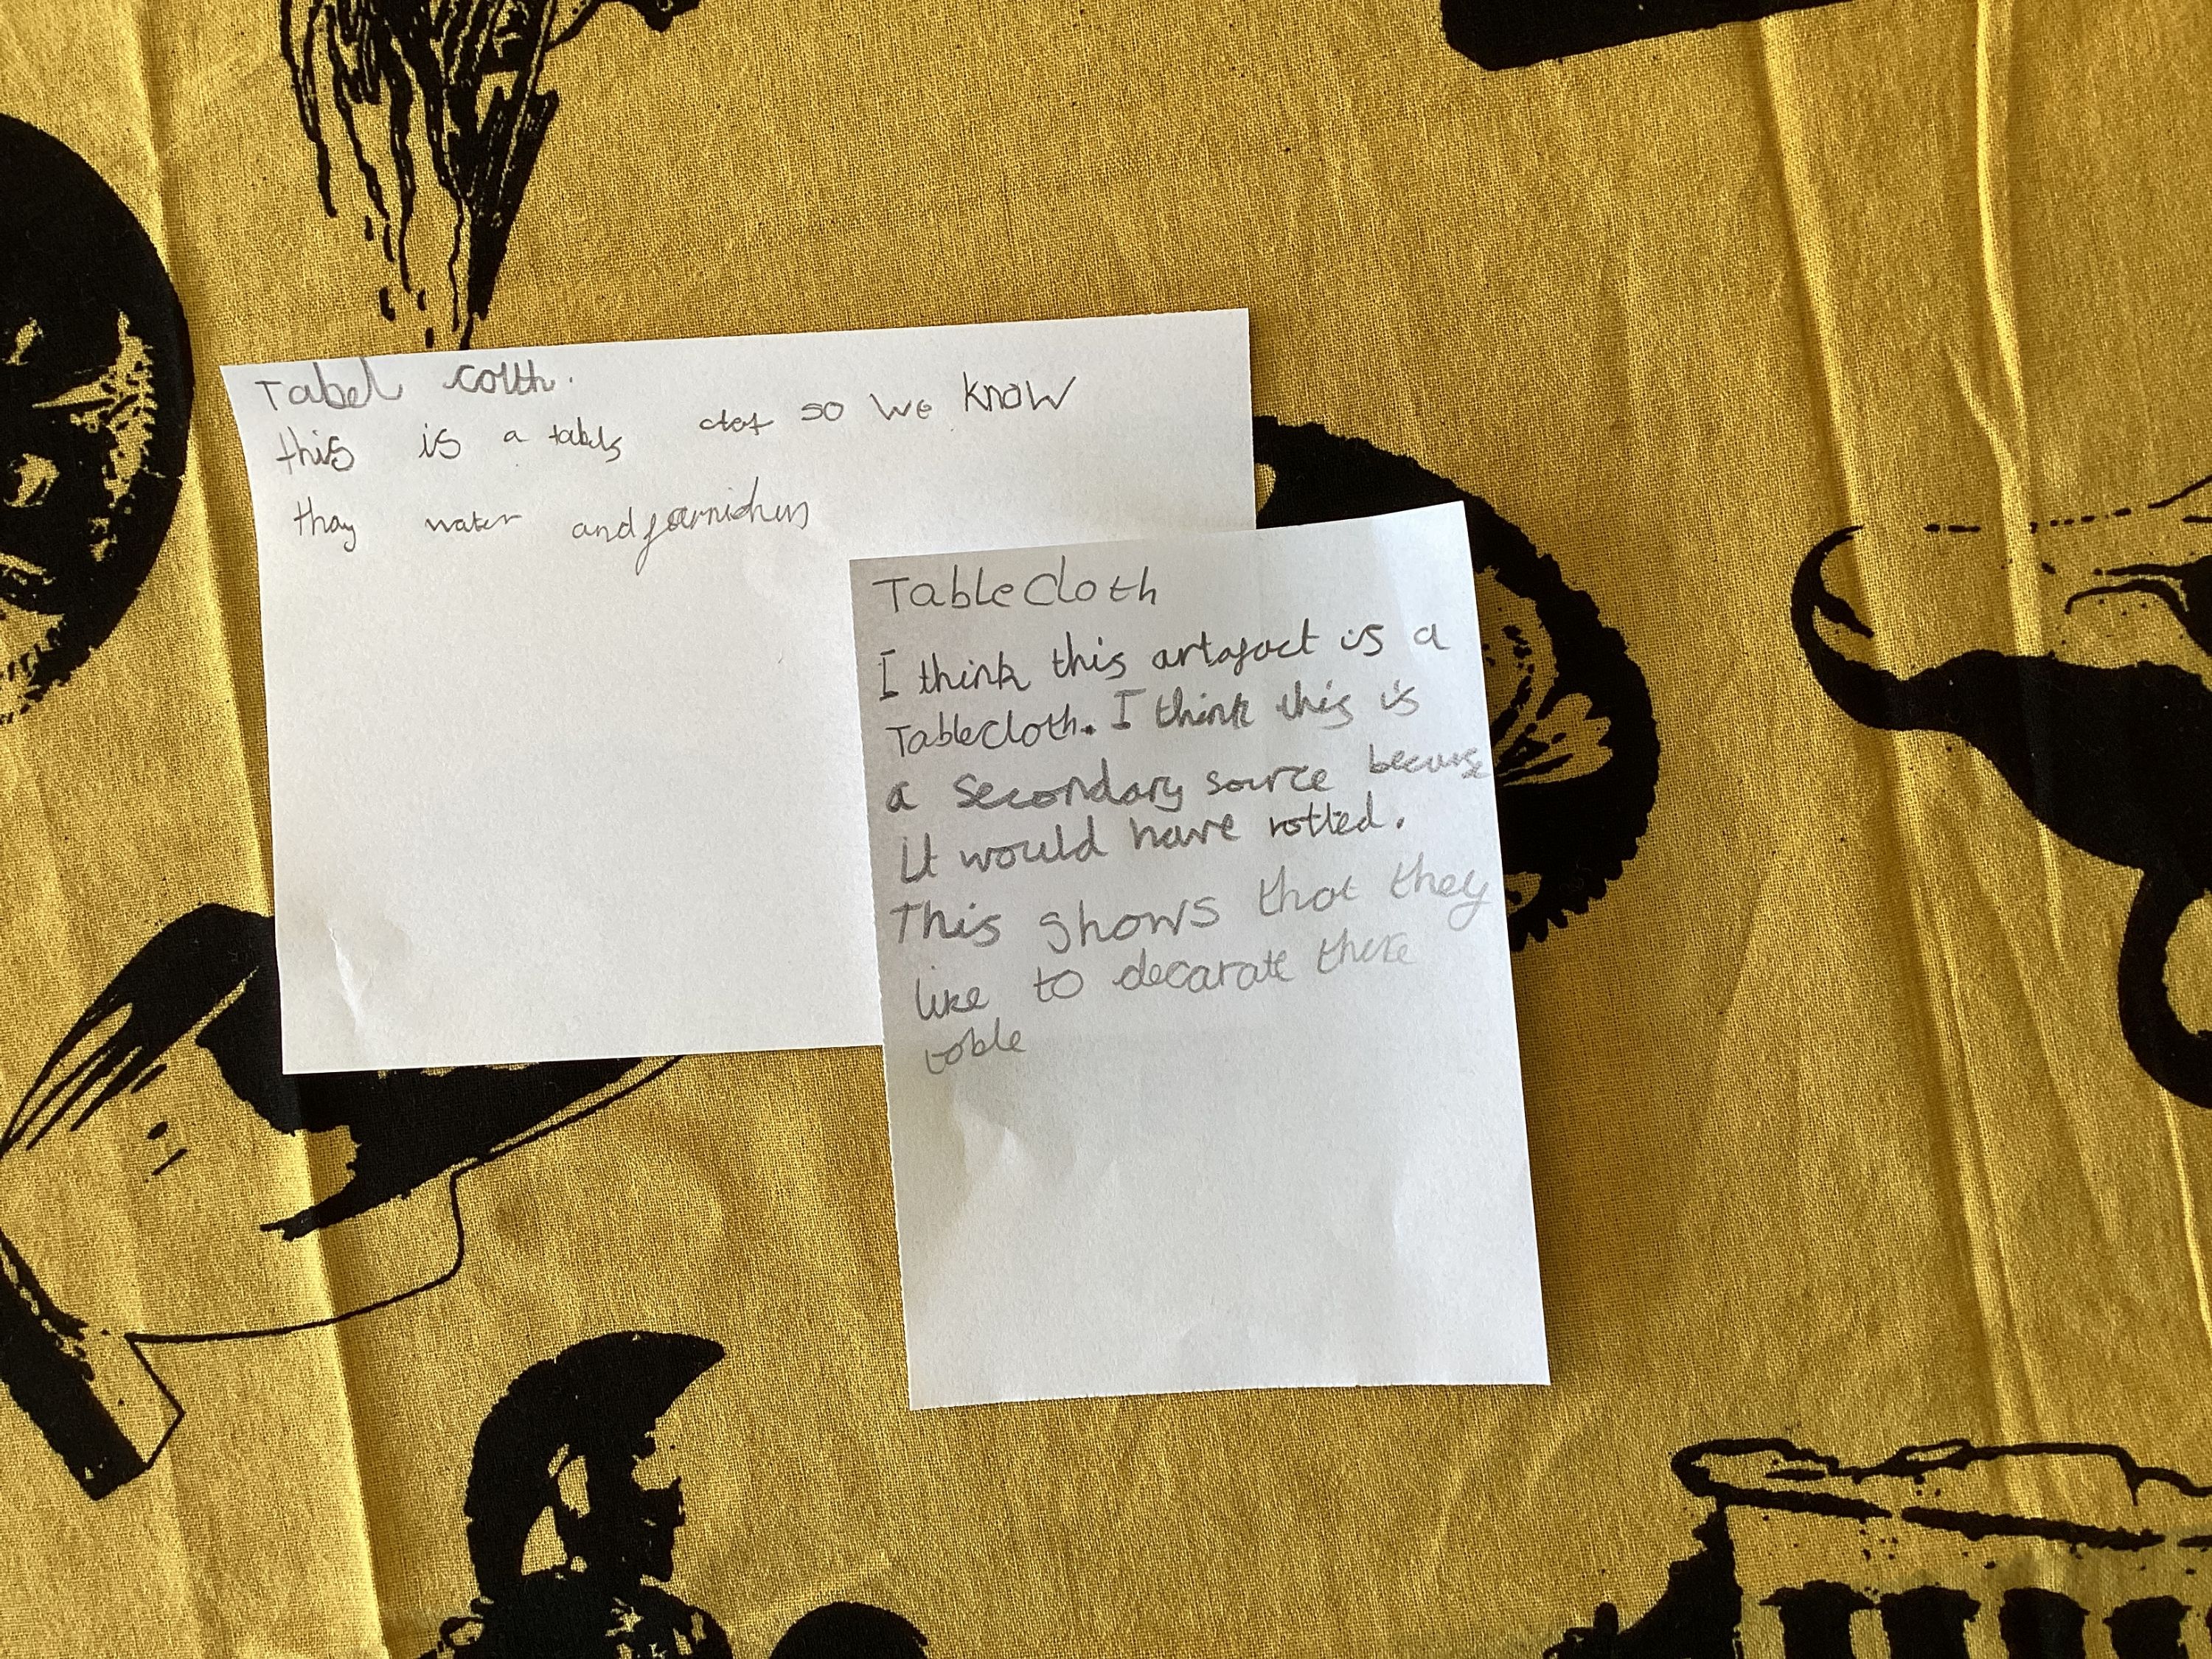 Tabel colth.
this is a tabls clot so we know
thay water and
Tablecloth
I think this artafact is a
Tablecloth. I think this is
a secondary source becuse
it would have rotted.
This shows that they
like to decarate there
table